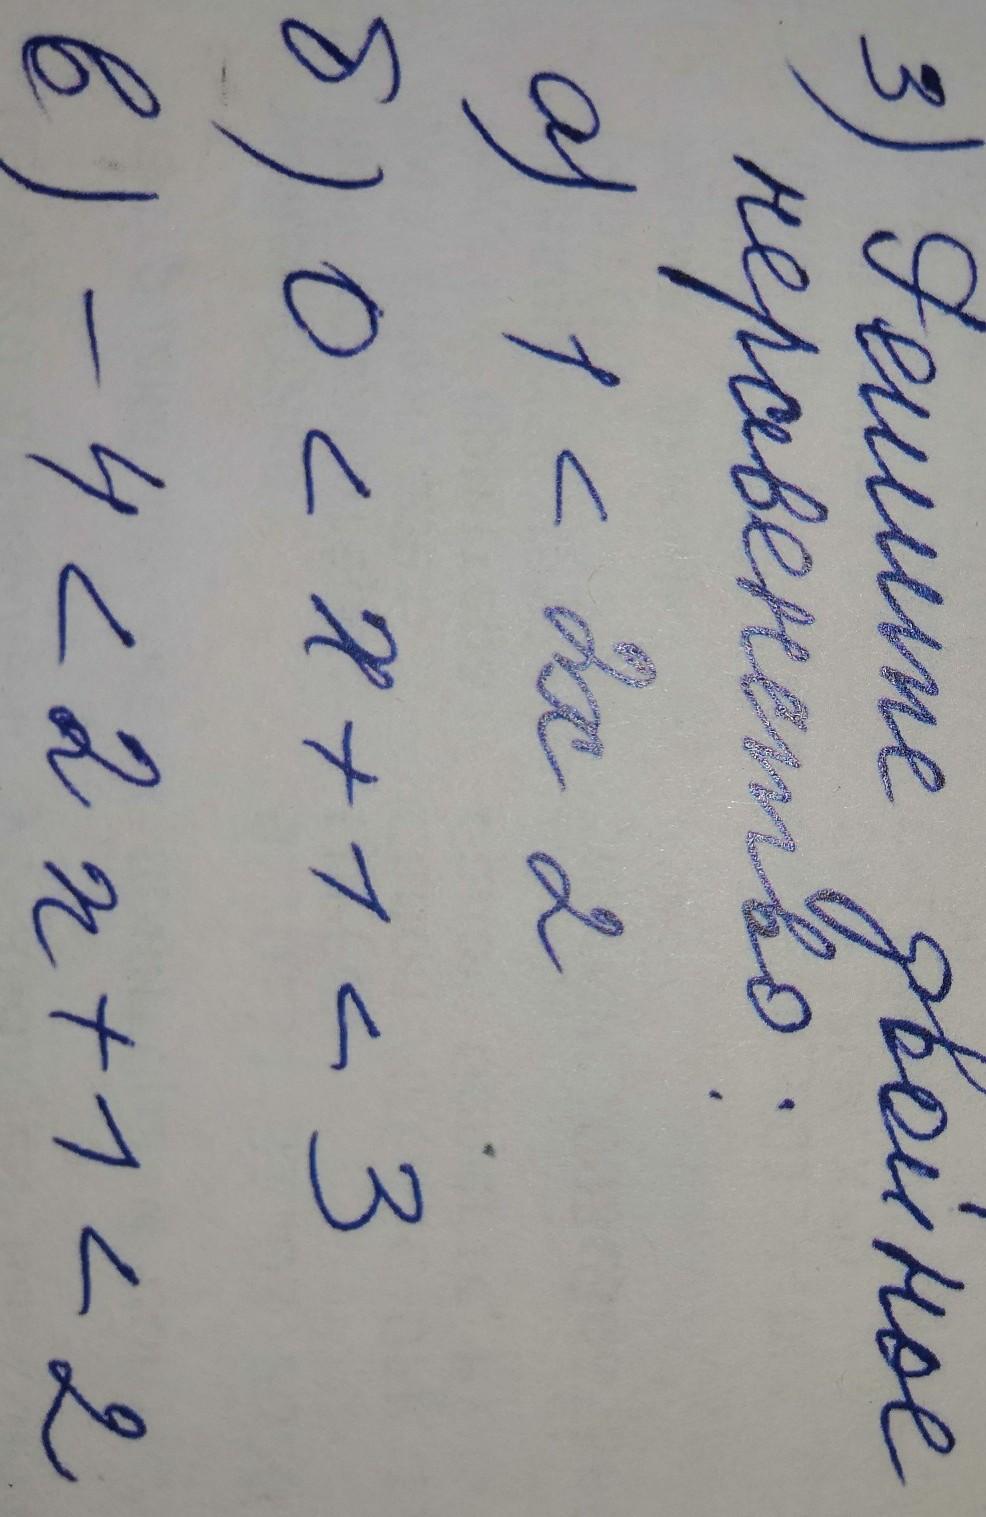 3) Решите двойное
неравенство:
а) 1 < 2x 2
б) 0 < x + 1 < 3
в) - 4 < 2x + 1 < 2